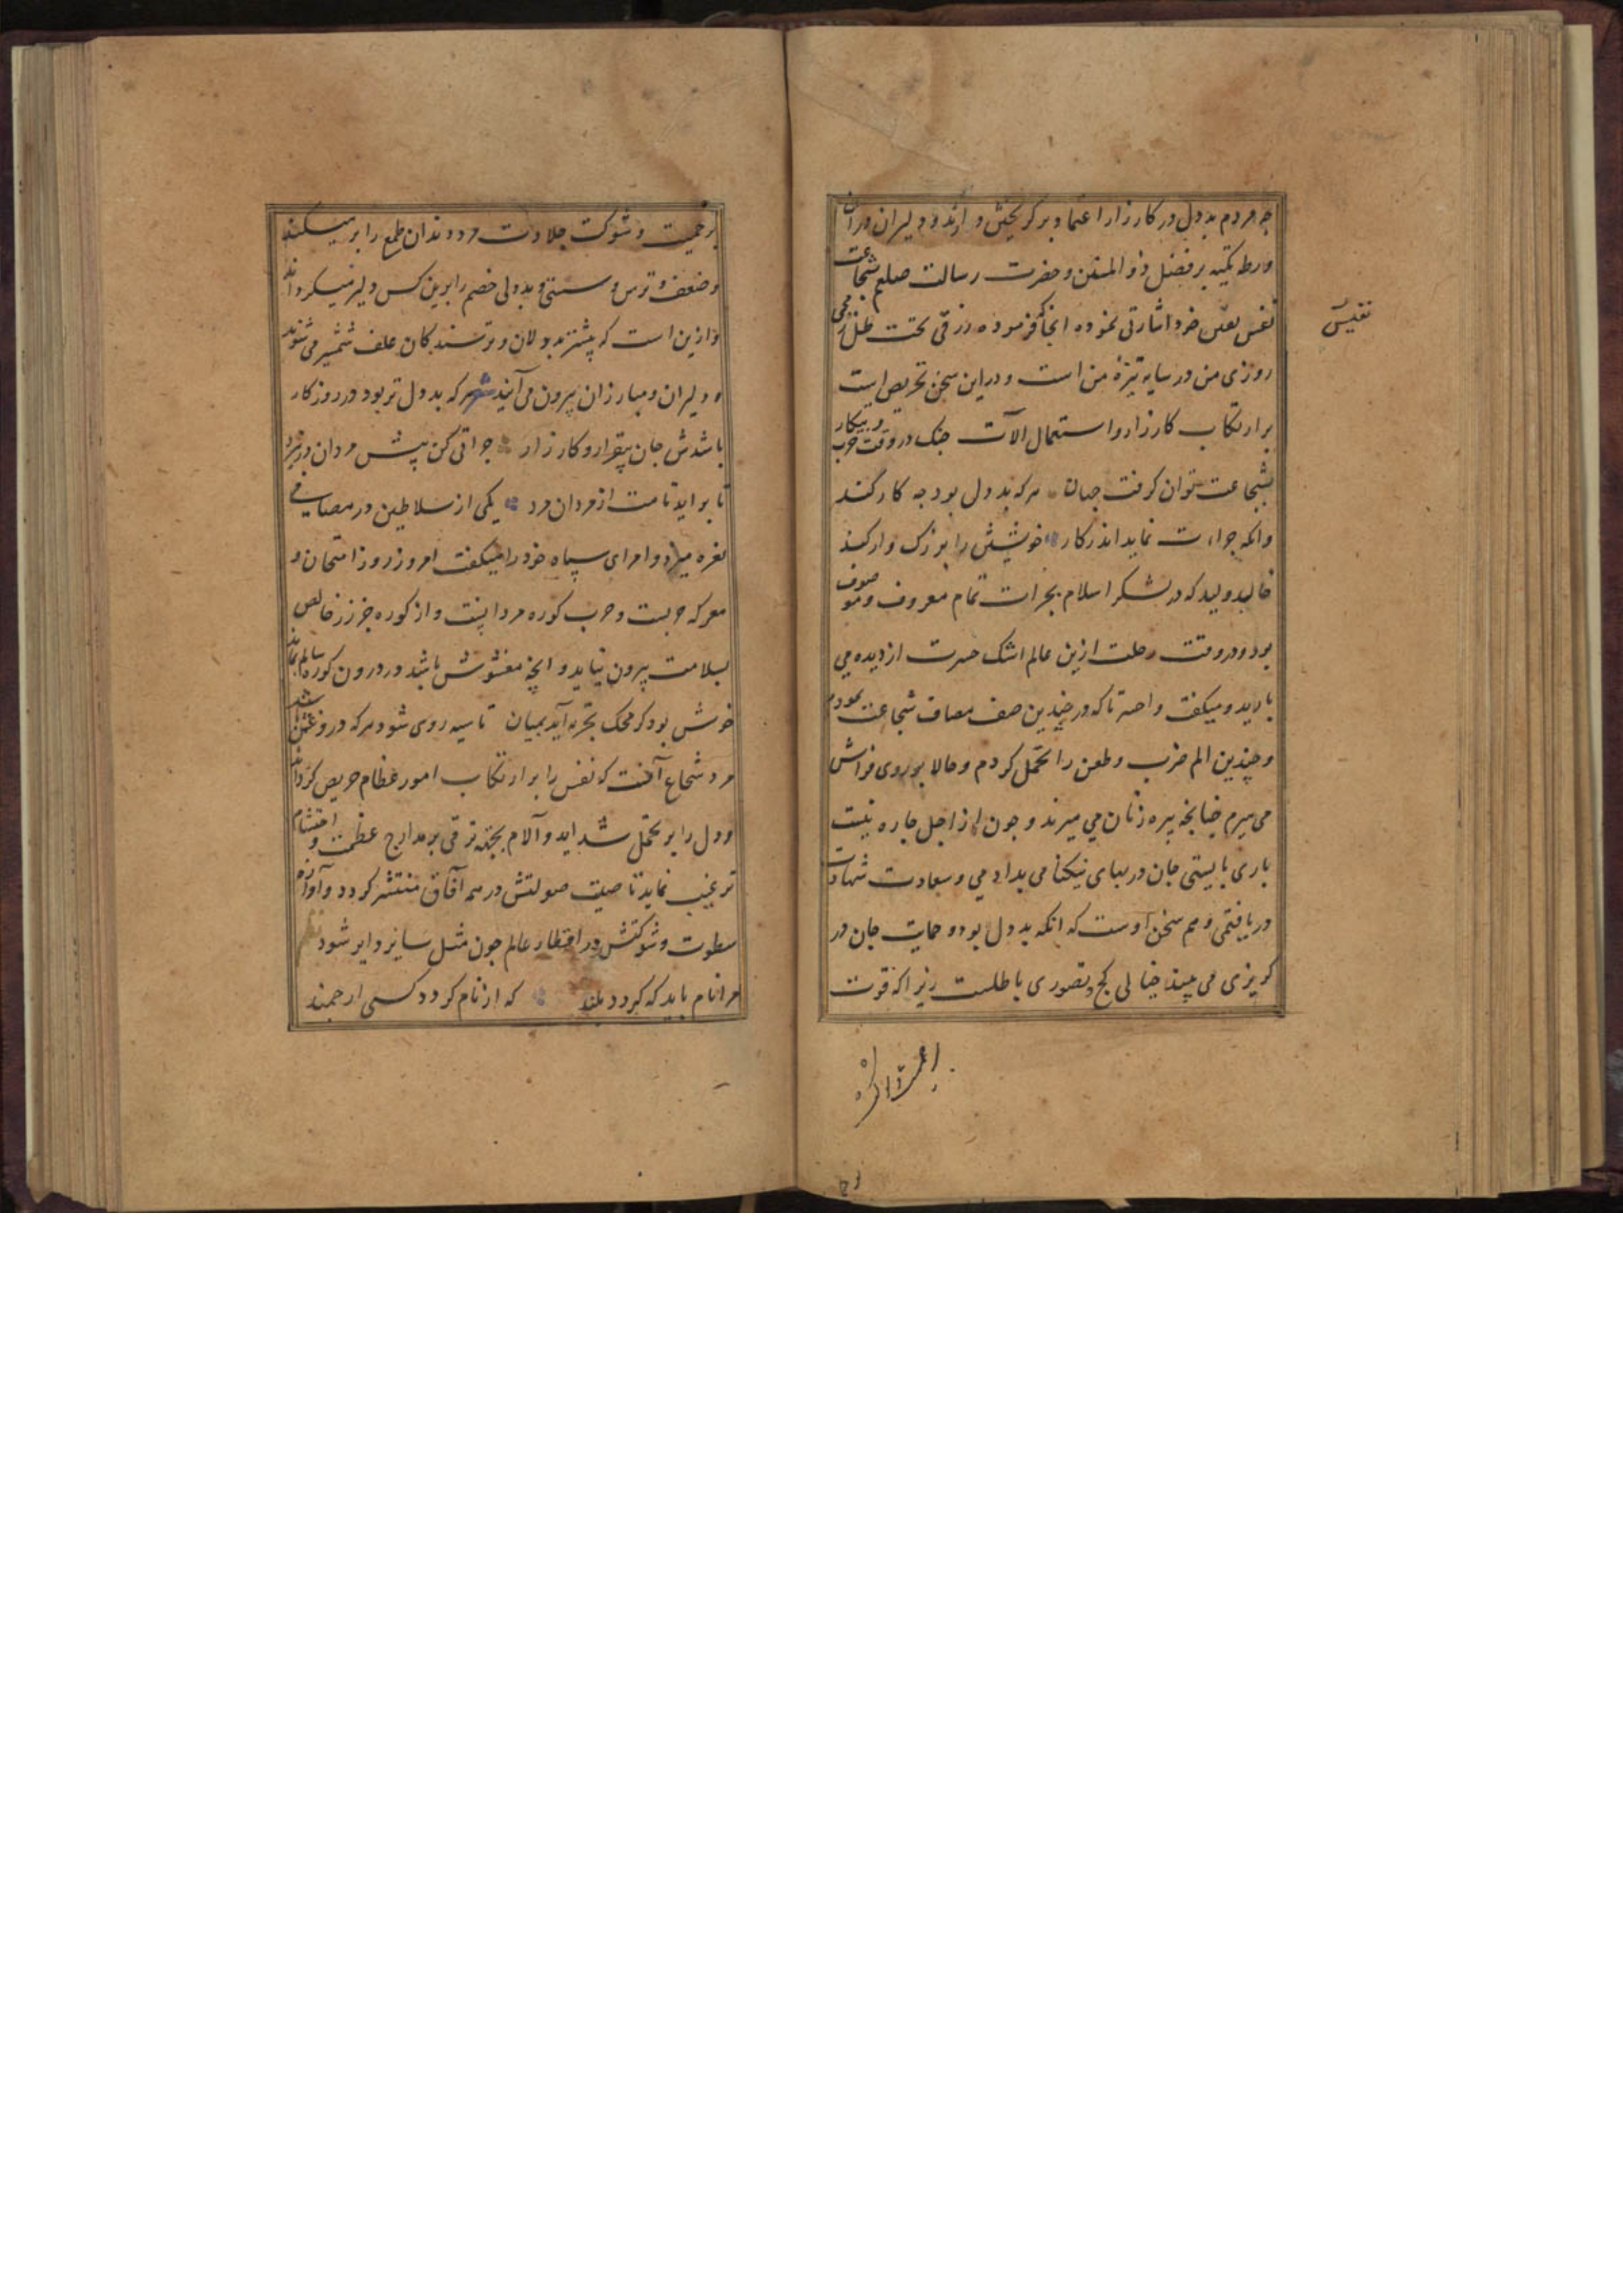 چه مردم بددل در کارزار اعتماد بر گریختن دارند و دلیران در آن
ورطه تکیه بر فضل ذو المنن و حضرت رسالت صلعم شجاعت
نفس نفیس خود اشارتی نموده انجا که فرموده رزقی تحت ظل رمحی
نفیس
روزی من در سایه نیزه من است و درین سخن تحریص است
بر ارتکاب کارزار و استعمال آلات جنک در وقت حرب و پیکار
بشجاعت توان کرفت جهان هر که بددل بود چه کار کند
وانکه جراءت نماید اندر کار خویشتن را بزرک وار کند
خالد ولید که در لشکر اسلام بجرات تمام معروف و موصوف
بود در وقت رحلت ازین عالم اشک حسرت از دیده می
بارید و میکفت واحسرتا که در چندین صف مصاف شجاعت نمودم
و چندین الم ضرب و طعن را تحمل کردم و حالا بر روی فراش
می میرم چنانچه پیره زنان می میرند و چون از اجل چاره نیست
باری بایستی جان در بهای نیکنامی بدادمی و سعادت شهادت
دریافتمی و هم سخن اوست که انکه بددل بود و حمایت جان در
کریزی می بیند خیالی کج و تصوری باطلست زیرا که قوت
بر حمیت و شوکت جلادت مرد دندان طمع را بر میکند
و ضعف و ترس و سستی و بددلی خصم را برین کس دلیر میکرداند
و ازین است که بیشتر بددلان و ترسندکان علف شمشیر می شوند
و دلیران و مبارزان بیرون می آیند شعر هر که بددل تر بود در روزکار
باشدش جان بیقرار و کارزار جراتی کن پیش مردان در نبرد
تا براید نامت از مردان مرد یکی از سلاطین در مصافی
نعره میزد و امرای سپاه خود را میکفت امروز روز امتحان و
معرکه حربست و حرب کوره مردانیست و از کوره جز زر خالص
بسلامت بیرون نیاید و انچه مغشوش باشد در درون کوره سالم نماند
خوش بود کر محک تجربه آید بمیان تا سیه روی شود هر که درو غش باشد
مرد شجاع آنست که نفس را بر ارتکاب امور عظام حریص کرداند
و دل را بر تحمل شداید و آلام بجهة ترقی بر مدارج عظمت و احتشام
ترغیب نماید تا صیت صولتش در همه آفاق منتشر کردد و آوازه
سطوت و شوکتش در اقطار عالم چون مثل سایر دایر شود
مرا نام باید که کردد بلند که از نام کردد کسی ارجمند